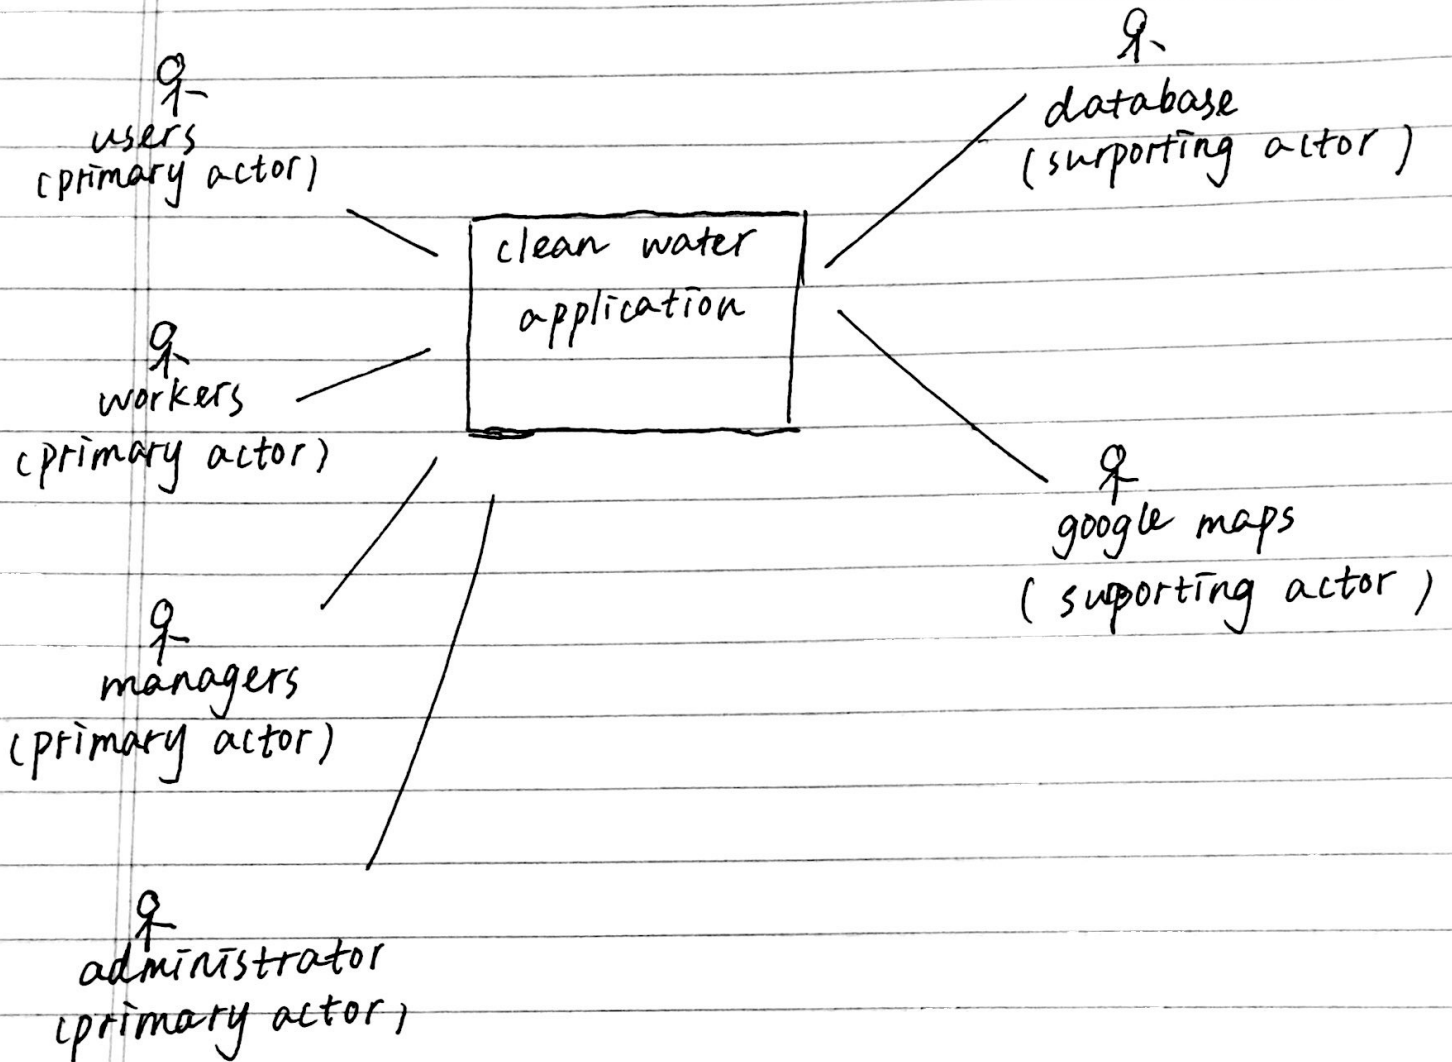 users
(primary actor)
workers
(primary actor)
managers
(primary actor)
administrator
(primary actor)
clean water
application
database
(surporting actor)
google maps
(suporting actor)